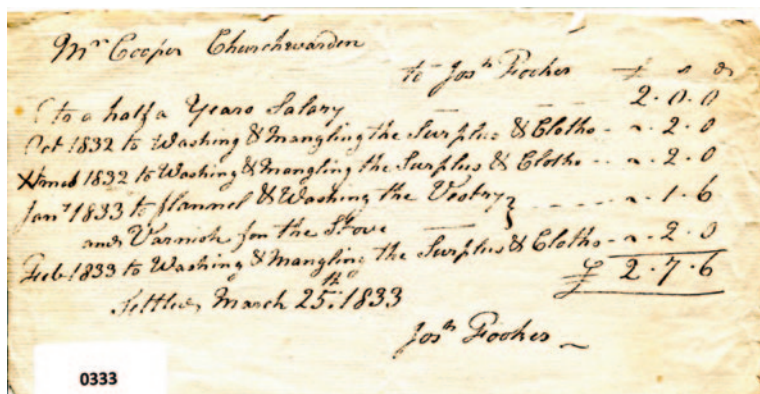 Mr Cooper Churchwarden
to Josh Fookes £ s d
to a half a Years Salary 2.0.0
Oct 1832 to Washing & Mangling the Surplus & Cloths - " . 2 . 0
Xmas 1832 to Washing & Mangling the Surplus & Cloths - - " . 2 . 0
Jany 1833 to flannel & Washing the Vestry } - - - - " . 1 . 6
and Varnish for the Stove
Feb 1833 to Washing & Mangling the Surplus & Cloths - " . 2 . 0
£ 2.7.6
Settled March 25th 1833
Josh Fookes
0333